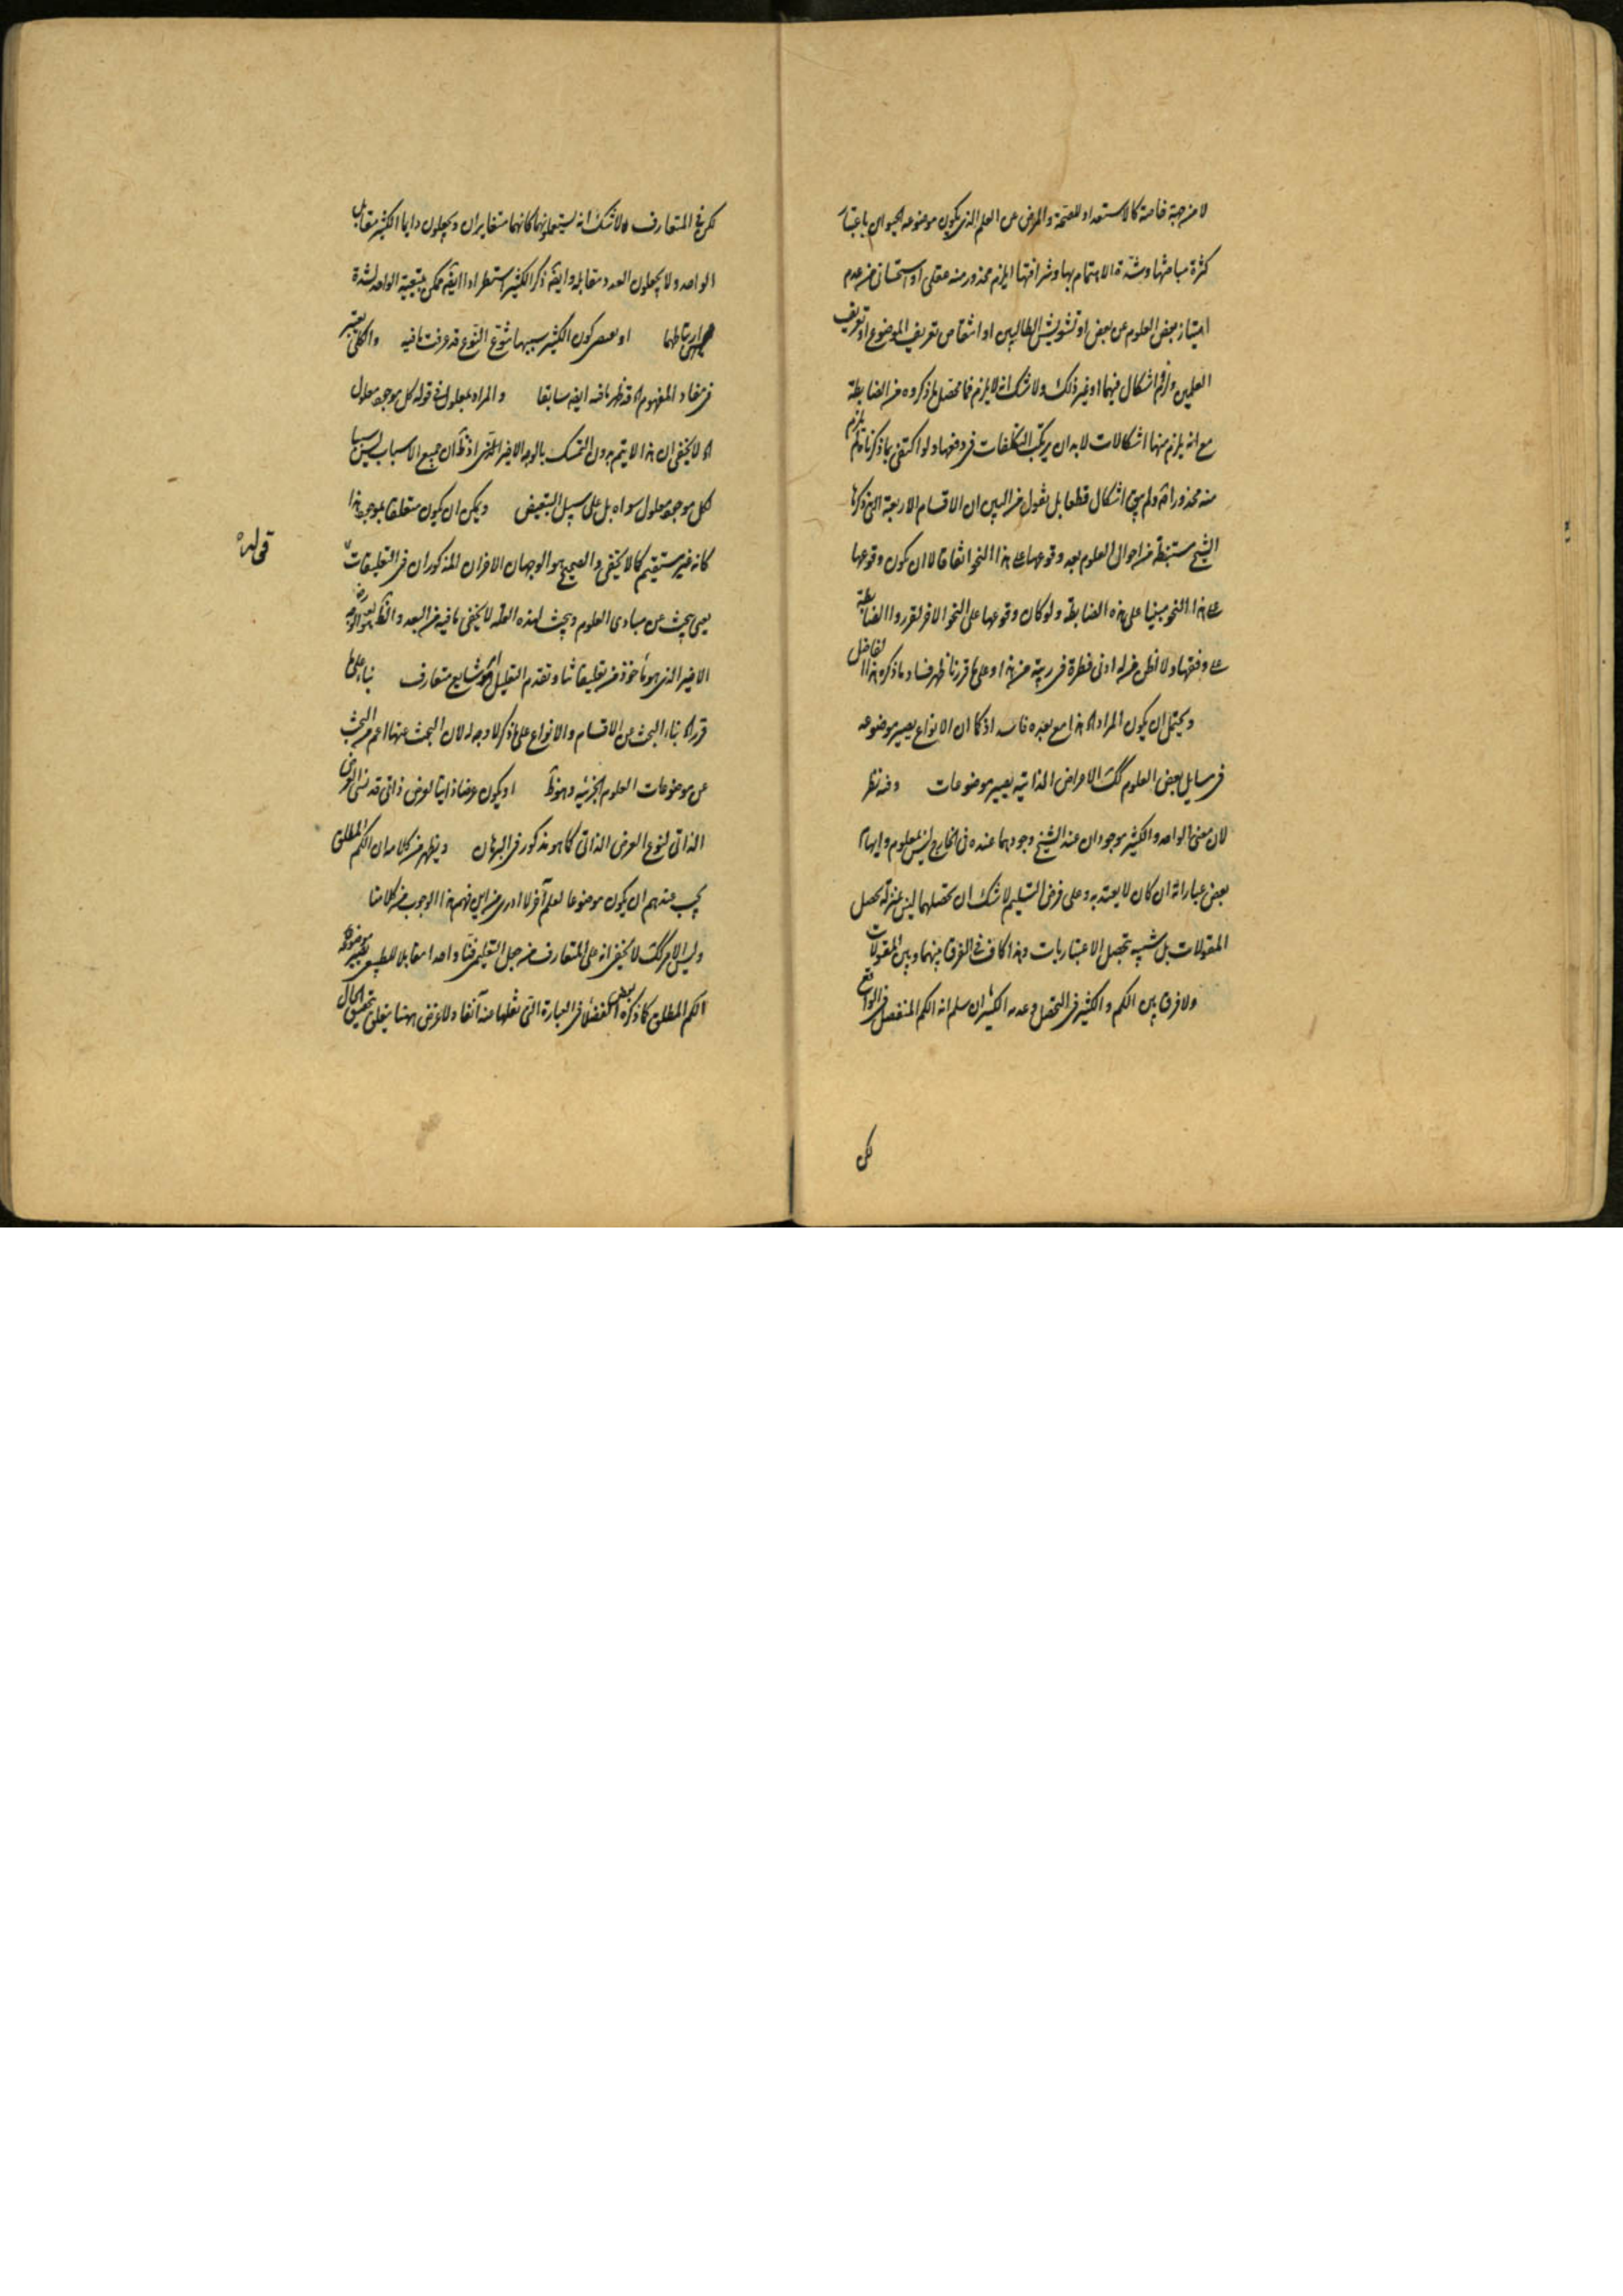 لا من جهة خاصة كالاستعداد للصحة والمرض عن العلم الذي يكون موضوعه الحيوان باعتبار
كثرة مباحثها وشدة الاهتمام بها وشرافتها لم يلزم محذور منه عقلي او استحساني من عدم
امتياز بعض العلوم عن بعض او تشويش الطالبين او انتقاص تعريف الموضوع او تعريف
العلمين ولزوم اشكال فيهما او غير ذلك ولا شك انه لا يلزم فما محصل ما ذكروه من الضابطة
مع انه يلزم منها اشكالات لا بد ان يرتكب التكلفات في دفعها ولو اكتفى بما ذكرنا لم يلزم
منه محذور اصلا ولم يبق اشكال قطعا بل نقول من البين ان الاقسام الاربعة التي ذكرها
الشيخ مستنبطة من احوال العلوم بعد وقوعها على هذا النحو اتفاقا لا ان يكون وقوعها
على هذا النحو مبنيا على هذه الضابطة ولو كان وقوعها على النحو الاخر لقرروا الضابطة
على وفقها ولا اظن من له ادنى فطرة في ريبة من هذا وعلى ما قررنا ظهر فساد ما ذكره هذا الفاضل
ويحتمل ان يكون المراد اه هذا مع بعده فاسد اذ كما ان الانواع يصير موضوعه
في مسايل بعض العلوم كك الاعراض الذاتية يصير موضوعات وفيه نظر
لان معنى الواحد والكثير موجودان عند الشيخ وجودهما عنده في الخارج ليس بمعلوم وايهام
بعض عباراته ان كان لا يعتد به وعلى فرض التسليم لا شك ان تحصلهما ليس بمنزلة تحصل
المقولات بل شبيه بتحصل الاعتباريات وهذا كاف في الفرق بينهما وبين المقولات
ولا فرق بين الكم والكثير في التحصل وعدمه الكثير ان سلم انه الكم المنفصل في الواقع
لكن
لكن في المتعارف لا شك انه يستعملونهما كانهما متغايران ويجعلون دايما الكثير مقابل
الواحد ولا يجعلون العدد مقابله وايضا ذكر الكثير استطرادا ايضا ممكن بتبعية الواحد لشدة
ارتباطهما او بعصر كون الكثير سببها شوع النوع قد عرفت ما فيه والكلي يعتبر
في مفاد المفهوم اه قد ظهر ما فيه ايضا سابقا والمراد بمعلول في قوله كل موجود معلول
اه لا يخفى ان هذا لا يتم بدون التمسك بالوجه الاخير اذ ظ ان جميع الاسباب ليس سببا
لكل موجود معلول سواه بل على سبيل التبعيض ويمكن ان يكون متعلقا بموجود هذا
كانه غير مستقيم كما لا يخفى والصحيح هو الوجهان الاخران المذكوران في التعليقات
قوله
يعني يبحث عن مبادي العلوم ويبحث لهذه العلة لا يخفى ما فيه من البعد والظ هو الوجه
الاخير الذي هو مأخوذ من تعليقاتنا وتقدم التعليل امر شايع متعارف بناء على ما
قرره اه بناء البحث عن الاقسام والانواع على ما ذكر لا وجه له لان البحث عنها اعم من البحث
عن موضوعات العلوم الجزئيه وهو ظ او يكون عرضا ذاتيا لعرض ذاتي قد نسي العرض
الذاتي لنوع العرض الذاتي كما هو مذكور في البرهان ويظهر من كلامه ان الكم المطلق
يجب عندهم ان يكون موضوعا لعلم آخر لا ادري من اين فهم هذا الوجوب من كلامنا
وليس الامر كك لا يخفى انه على المتعارف من جعل التعليمي فنا واحدا مقابلا للطبيعي يصير موضوعه
الكم المطلق كما ذكره بعض الفضلا في العبارة التي نقلها منه آنفا ولا غرض ههنا يتعلق بتحقيق الحال